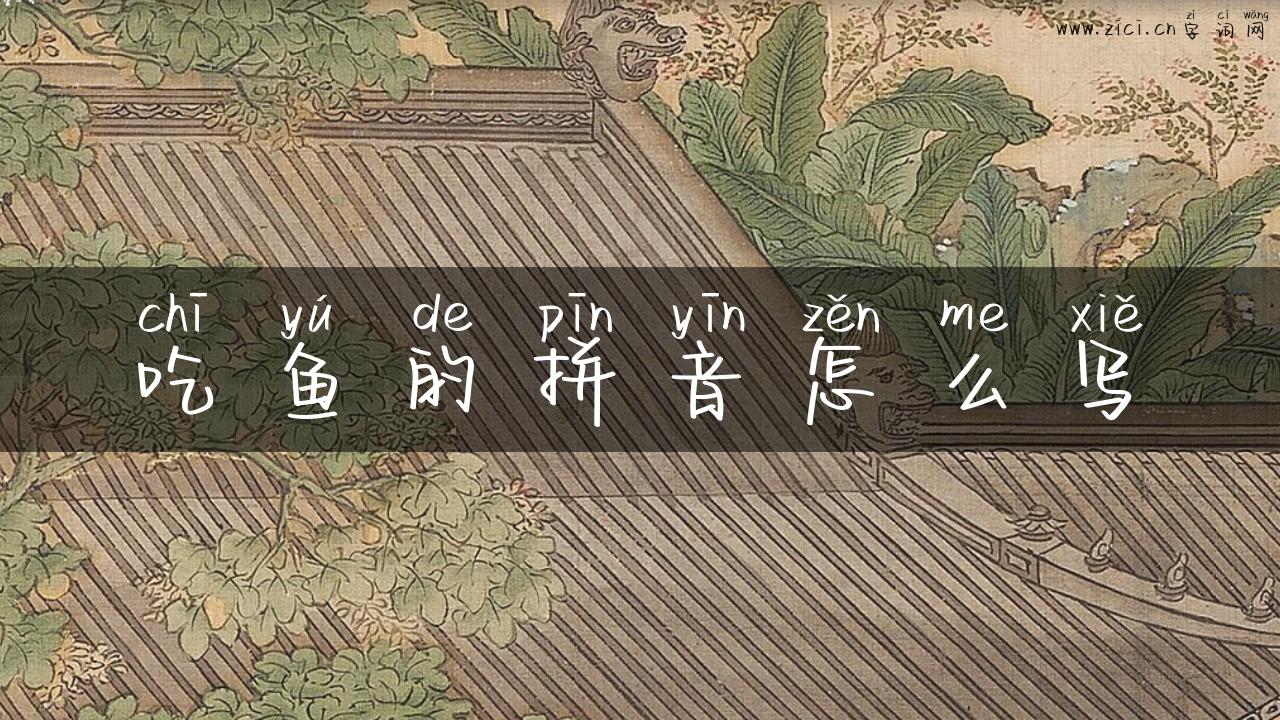 zì cí wǎng
www.zici.cn 字词网
chī yú de pīn yīn zěn me xiě
吃鱼的拼音怎么写